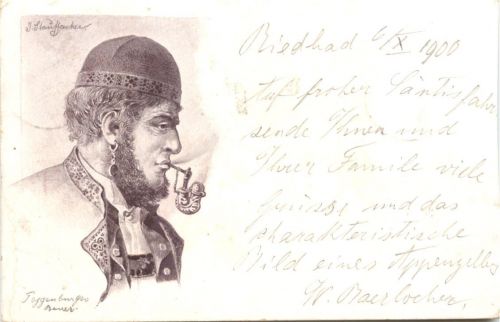 J. Stauffacher
Riedbad 6/X 1900
Auf froher Säntisfahrt
sende Ihnen und
Ihrer Familie viele
Grüsse und das
charakteristische
Bild eines Appenzellers
W. Baerlocher.
Toggenburger
Bauer.